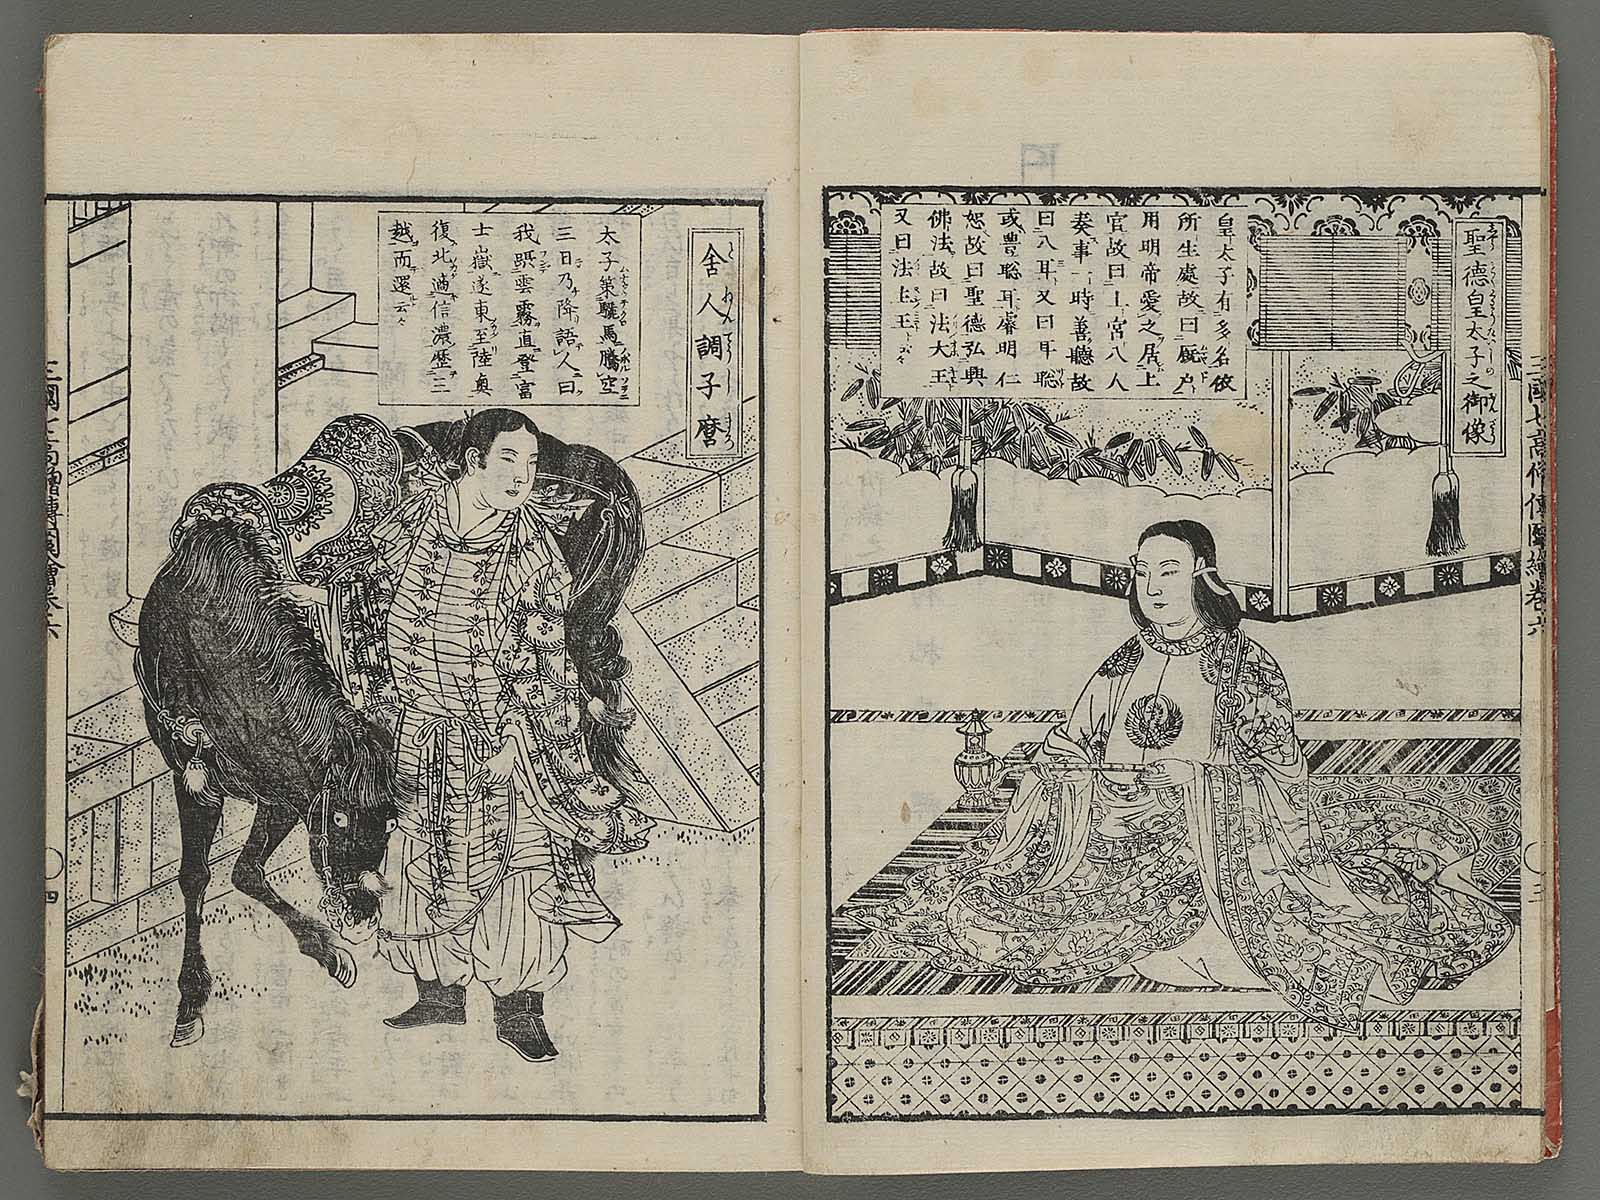 聖德皇太子之御像
皇太子有多名依
所生處故曰厩戸
用明帝愛之居上
宮故曰上宮八人
奏事一時善聽故
曰八耳又曰耳聡
或豊聡耳睿明仁
恕故曰聖德弘興
佛法故曰法大王
又曰法上王云々
三國七高僧傳圖繪卷六
〇三
舍人調子麿
太子策驪馬騰空
三日乃降語人曰
我躡雲霧直登富
士嶽遂東至陸奥
復北適信濃歴三
越而還云々
三國七高僧傳圖會卷六
〇四